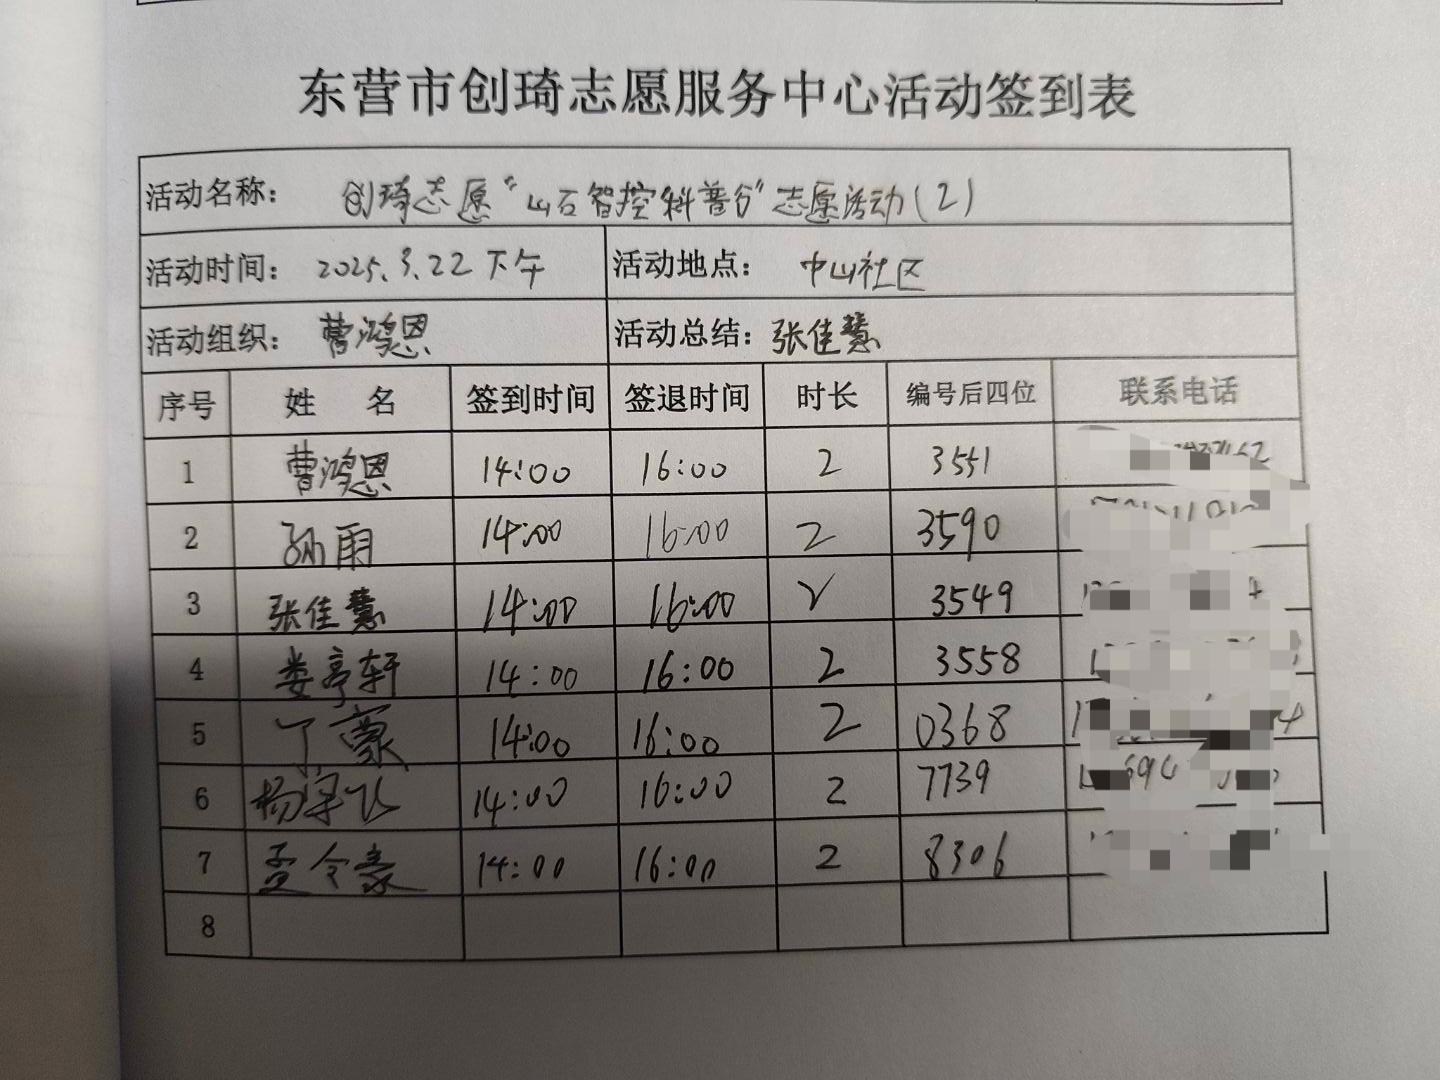 东营市创琦志愿服务中心活动签到表
活动名称： 创琦志愿“山石智控科普行”志愿活动(2)
活动时间： 2025.3.22 下午 活动地点： 中山社区
活动组织： 曹鸿恩 活动总结： 张佳慧
序号 姓 名 签到时间 签退时间 时长 编号后四位 联系电话
1 曹鸿恩 14:00 16:00 2 3551
2 孙雨 14:00 16:00 2 3590
3 张佳慧 14:00 16:00 2 3549
4 娄亭轩 14:00 16:00 2 3558
5 丁蒙 14:00 16:00 2 0368
6 杨 飞 14:00 16:00 2 7739
7 孟令豪 14:00 16:00 2 8306
8